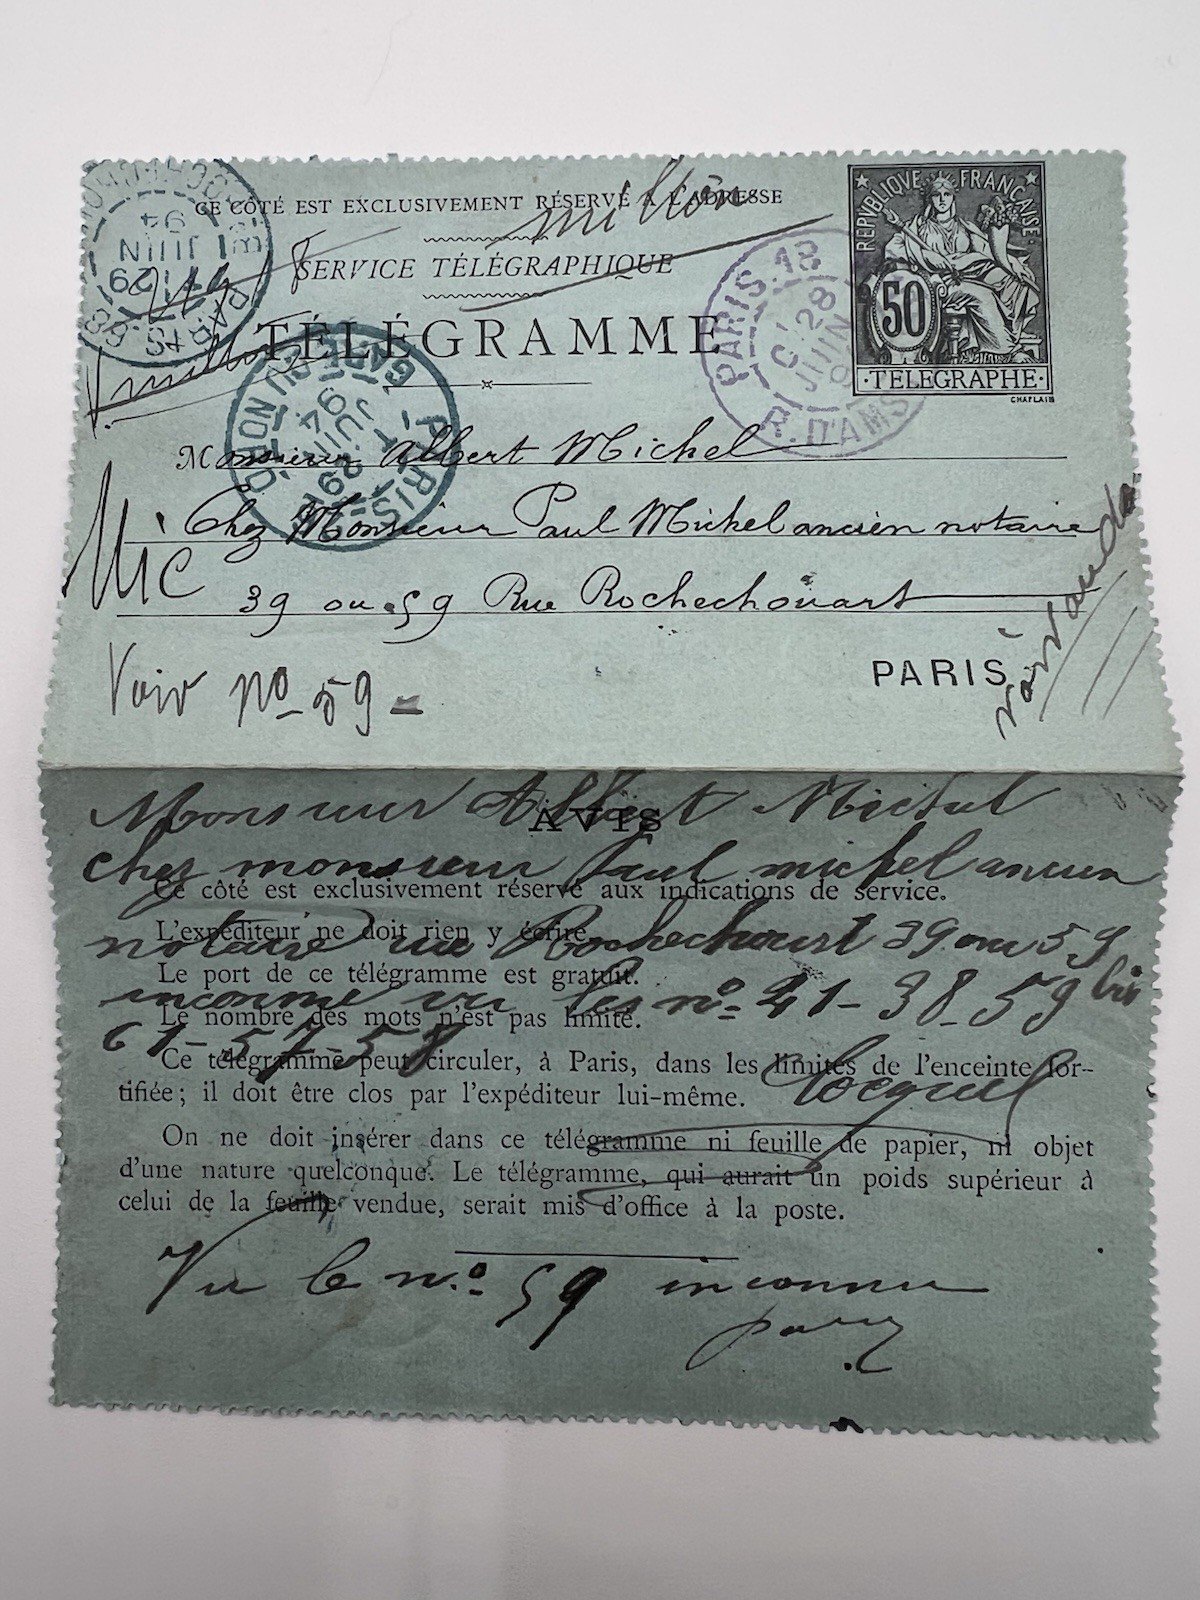 CE CÔTÉ EST EXCLUSIVEMENT RÉSERVÉ A L'ADRESSE
million
SERVICE TÉLÉGRAPHIQUE
TÉLÉGRAMME
REPVBLIQVE FRANÇAISE
50
TELEGRAPHE
CHAPLAIN
PARIS 18
28
JUIN
R. D'AMS
PARIS
29
JUIN
94
PARIS
GARE DU NORD
JUIN
94
Monsieur Albert Michel
Chez Monsieur Paul Michel ancien notaire
39 ou 59 Rue Rochechouart
Mic
Voir No 59
PARIS
voir
Monsieur Albert Michel
AVIS
chez monsieur Paul michel ancien
Ce côté est exclusivement réservé aux indications de service.
L'expéditeur ne doit rien y écrire.
notaire rue Rochechouart 39 ou 59
Le port de ce télégramme est gratuit.
inconnu vu les no 41-38-59 bis
Le nombre des mots n'est pas limité.
61-57-58
Ce télégramme peut circuler, à Paris, dans les limites de l'enceinte for-
tifiée; il doit être clos par l'expéditeur lui-même.
On ne doit insérer dans ce télégramme ni feuille de papier, ni objet
d'une nature quelconque. Le télégramme, qui aurait un poids supérieur à
celui de la feuille vendue, serait mis d'office à la poste.
Vu le no 59 inconnu